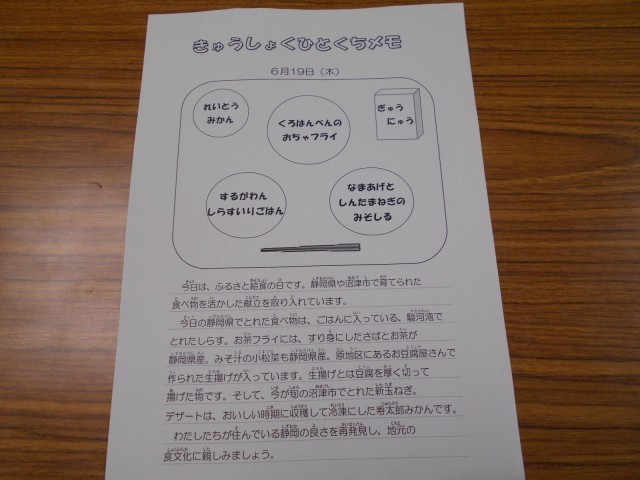 きゅうしょくひとくちメモ
6月19日（木）
れいとう
みかん
くろはんぺんの
おちゃフライ
ぎゅう
にゅう
するがわん
しらすいりごはん
なまあげと
しんたまねぎの
みそしる
今日は、ふるさと給食の日です。静岡県や沼津市で育てられた
食べ物を活かした献立を取り入れています。
今日の静岡県でとれた食べ物は、ごはんに入っている、駿河湾で
とれたしらす。お茶フライには、すり身にしたさばとお茶が
静岡県産。みそ汁の小松菜も静岡県産。原地区にあるお豆腐屋さんで
作られた生揚げが入っています。生揚げとは豆腐を厚く切って
揚げた物です。そして、今が旬の沼津市でとれた新玉ねぎ。
デザートは、おいしい時期に収穫して冷凍にした寿太郎みかんです。
わたしたちが住んでいる静岡の良さを再発見し、地元の
食文化に親しみましょう。